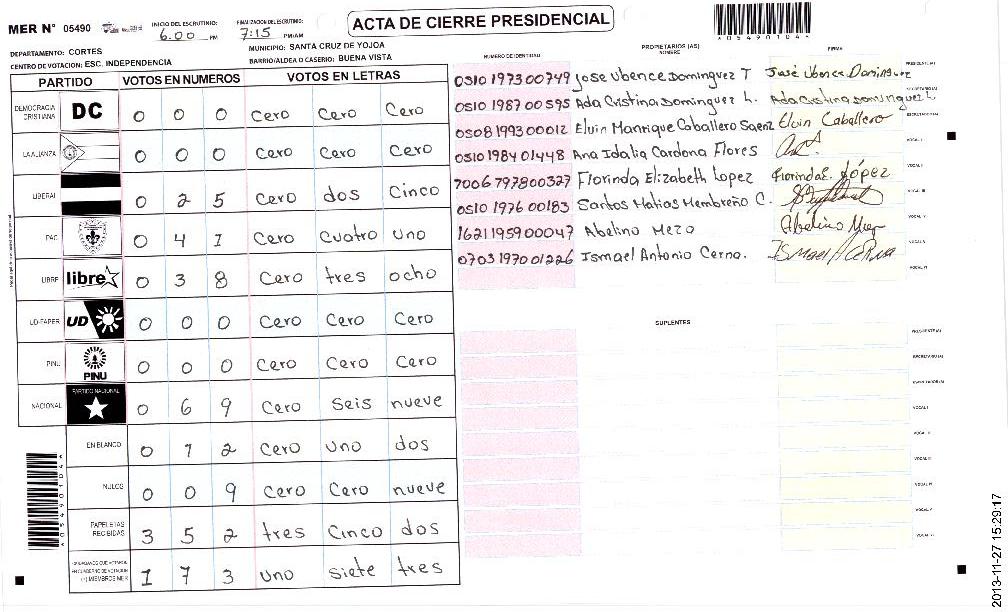 MER N° 05490
INICIO DEL ESCRUTINIO: 6:00 PM
FINALIZACION DEL ESCRUTINIO: 7:15 PM/AM
ACTA DE CIERRE PRESIDENCIAL
*05490104*
DEPARTAMENTO: CORTES
MUNICIPIO: SANTA CRUZ DE YOJOA
CENTRO DE VOTACION: ESC. INDEPENDENCIA
BARRIO/ALDEA O CASERIO: BUENA VISTA
PARTIDO VOTOS EN NUMEROS VOTOS EN LETRAS
DEMOCRACIA CRISTIANA DC 0 0 0 Cero Cero Cero
LA ALIANZA 0 0 0 Cero Cero Cero
LIBERAL 0 2 5 Cero dos Cinco
PAC 0 4 1 Cero Cuatro uno
LIBRE libre 0 3 8 Cero tres ocho
UD-FAPER UD 0 0 0 Cero Cero Cero
PINU PINU 0 0 0 Cero Cero Cero
NACIONAL PARTIDO NACIONAL 0 6 9 Cero Seis nueve
EN BLANCO 0 1 2 Cero uno dos
NULOS 0 0 9 Cero Cero nueve
PAPELETAS RECIBIDAS 3 5 2 tres Cinco dos
(+) MIEMBROS MER 1 7 3 uno siete tres
*05490104*
PROPIETARIOS (AS)
NUMERO DE IDENTIDAD NOMBRE FIRMA
0510 1973 00749 Jose Ubence Dominguez T José Ubence Dominguez PRESIDENTE(A)
0510 1987 00595 Ada Cristina Dominguez L. Ada Cristina Dominguez L SECRETARIO(A)
0508 1993 00012 Elvin Manrique Caballero Saenz Elvin Caballero ESCRUTADOR(A)
0510 1984 01448 Ana Idalia Cardona Flores VOCAL I
7006 797800327 Florinda Elizabeth Lopez Florinda E. López VOCAL II
0510 1976 00183 Santos Matias Membreño C. VOCAL III
1621 1959 00047 Abelino Mezo Abelino VOCAL IV
0703 1970 01226 Ismael Antonio Cerna. Ismael A Cerna VOCAL V
VOCAL VI
SUPLENTES
PRESIDENTE(A)
SECRETARIO(A)
ESCRUTADOR(A)
VOCAL I
VOCAL II
VOCAL III
VOCAL IV
VOCAL V
VOCAL VI
2013-11-27 15:29:17